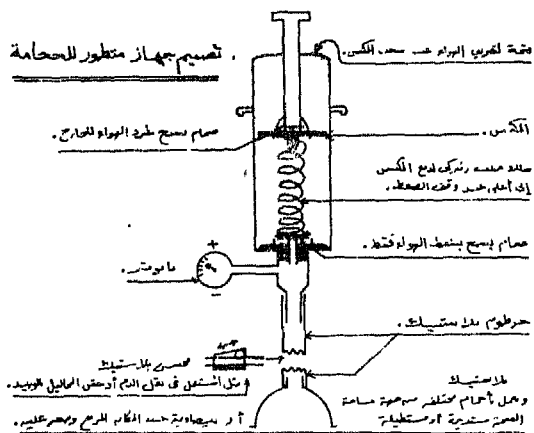 تصميم جهاز متطور للحجامة.
فتحة لخروج الهواء عند سحب المكبس.
صمام يسمح بطرد الهواء للخارج.
المكبس.
سلك صلب زنبركي لدفع المكبس
إلى أعلى عند وقف الضغط.
صمام يسمح بشفط الهواء فقط.
+
مانومتر.
−
خرطوم بلاستيك.
محبس بلاستيك
مثل المستعمل في نقل الدم أو حقن المحاليل الوريدية.
بلاستيك
وعمل بأحجام مختلفة من جهة مساحة
الفتحة مستديرة أو مستطيلة
أو بيضاوية حسب المكان